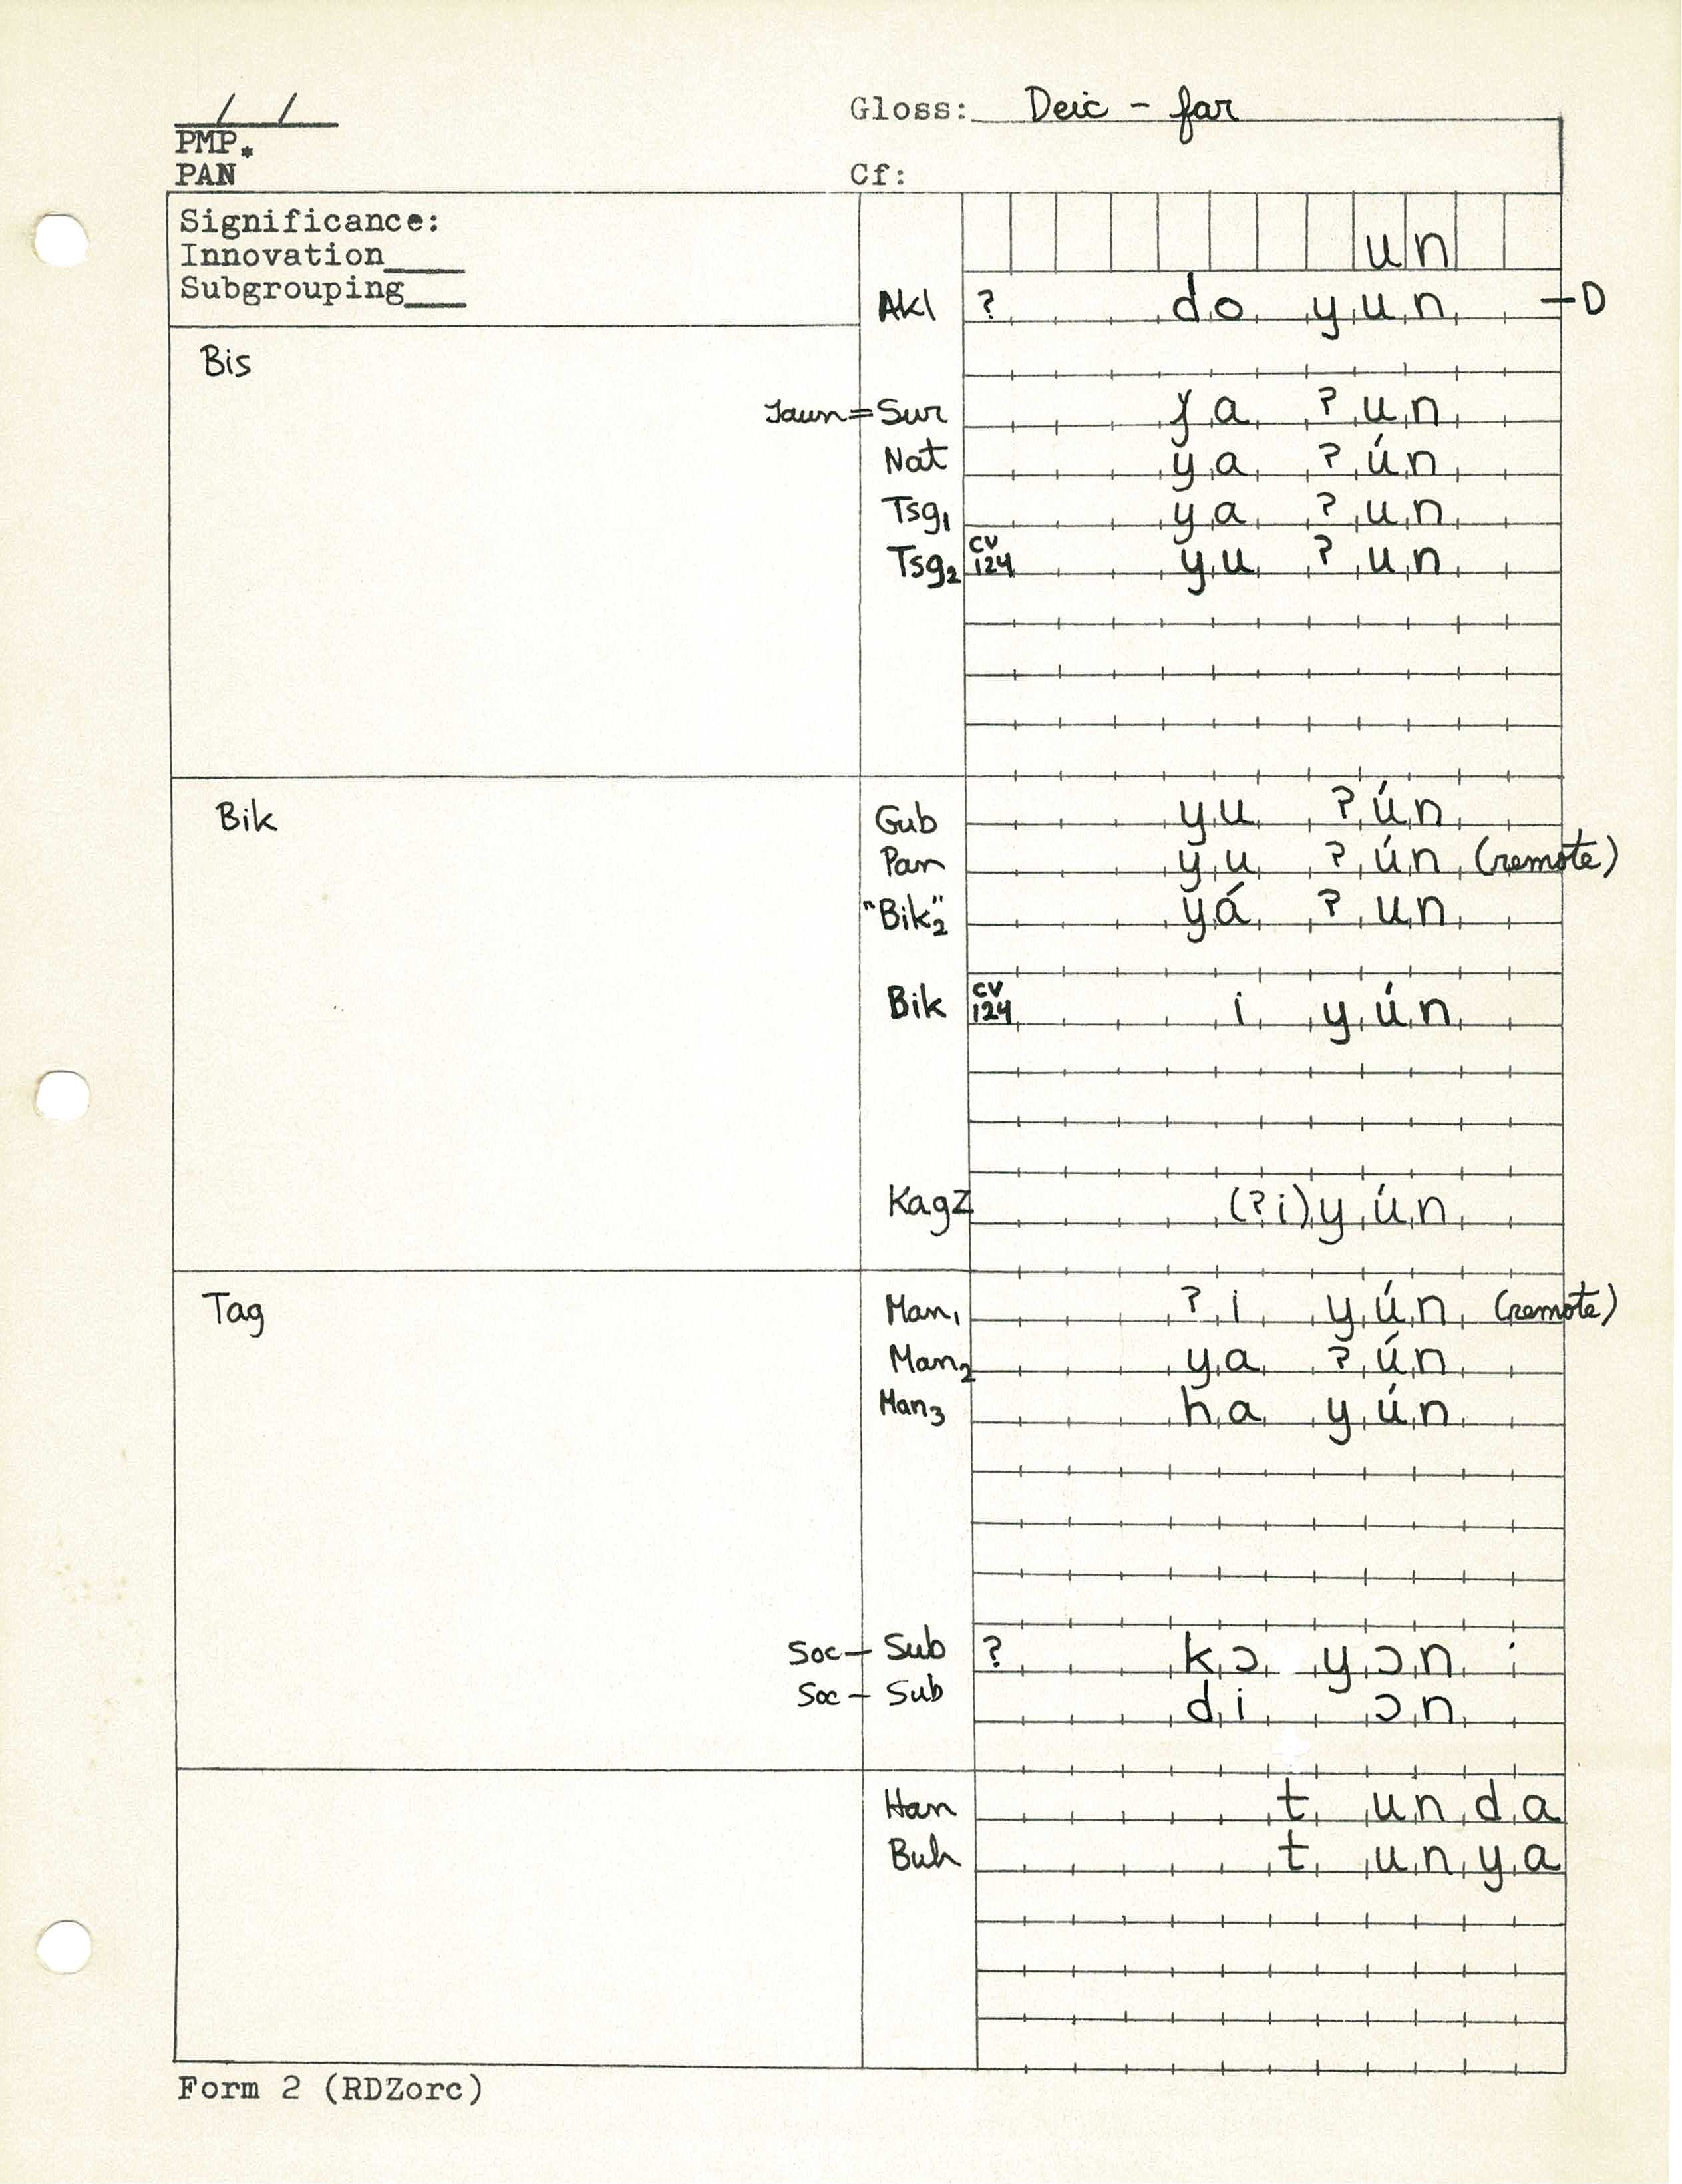 / /
Gloss: Deic - far
PMP*
PAN
Cf:
Significance:
Innovation____
Subgrouping___
un
Akl ? doyun -D
Bis
Jaun = Sur ɟaʔun
Nat yaʔún
Tsg1 yaʔun
Tsg2 CV 124 yuʔun
Bik
Gub yuʔún
Pan yuʔún (remote)
"Bik2" yáʔun
Bik CV 124 iyún
KagZ (ʔi)yún
Tag
Man1 ʔiyún (remote)
Man2 yaʔún
Man3 hayún
Soc - Sub ? kɔyɔn
Soc - Sub diɔn
Han tunda
Buh tunya
Form 2 (RDZorc)